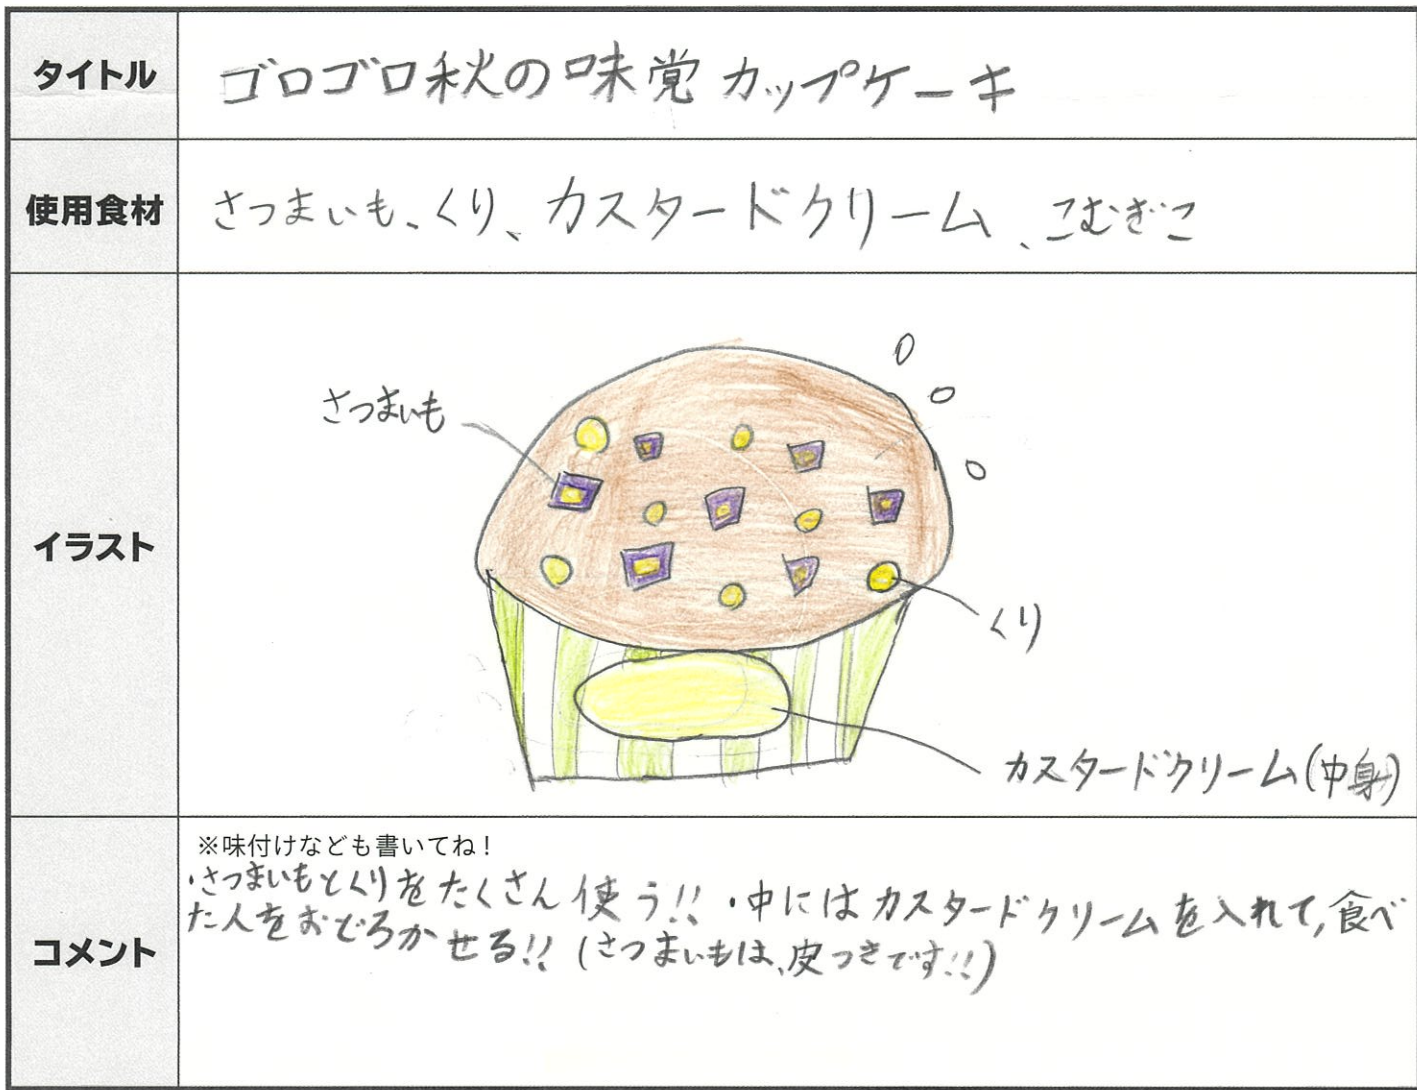 タイトル
ゴロゴロ秋の味覚カップケーキ
使用食材
さつまいも、くり、カスタードクリーム、こむぎこ
イラスト
さつまいも
くり
カスタードクリーム(中身)
コメント
※味付けなども書いてね!
・さつまいもとくりをたくさん使う!! ・中にはカスタードクリームを入れて,食べ
た人をおどろかせる!! (さつまいもは、皮つきです!!)